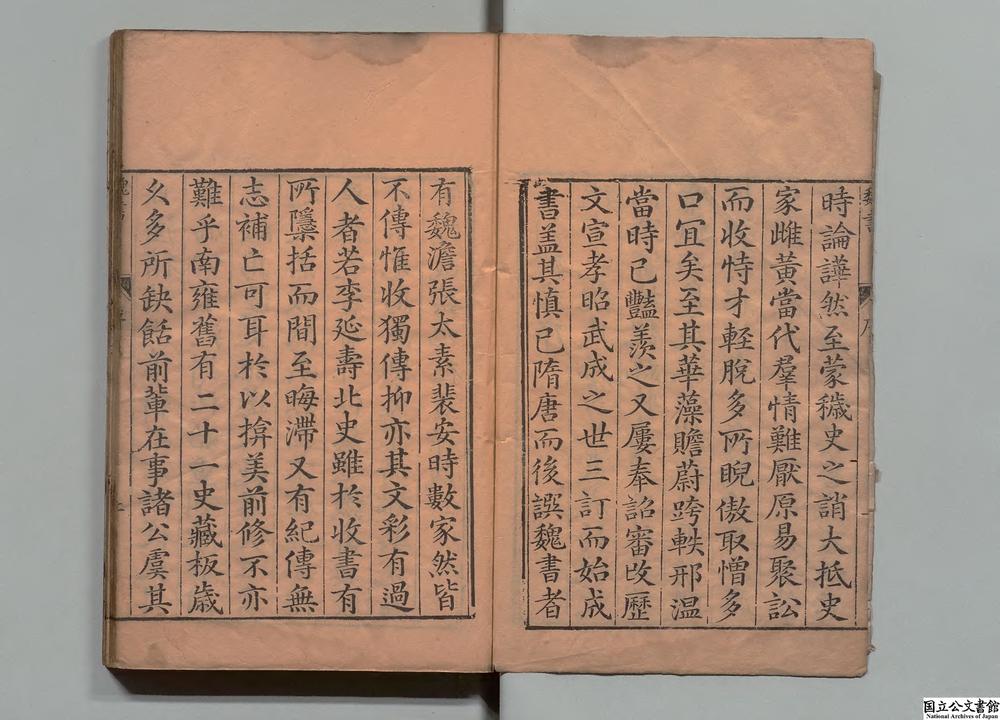 時論譁然至蒙穢史之誚大抵史
家雌黃當代羣情難厭原易聚訟
而收恃才輕脫多所睨傲取憎多
口冝矣至其華藻贍蔚跨軼邢溫
當時已豔羨之又屢奉詔審改歷
文宣孝昭武成之世三訂而始成
書盖其慎已隋唐而後譔魏書者
有魏澹張太素裴安時數家然皆
不傳惟收獨傳抑亦其文彩有過
人者若李延壽北史雖於收書有
所隱括而間至晦滯又有紀傳無
志補亡可耳於以揜美前修不亦
難乎南雍舊有二十一史藏板歲
久多所缺餂前輩在事諸公虞其
国立公文書館
National Archives of Japan